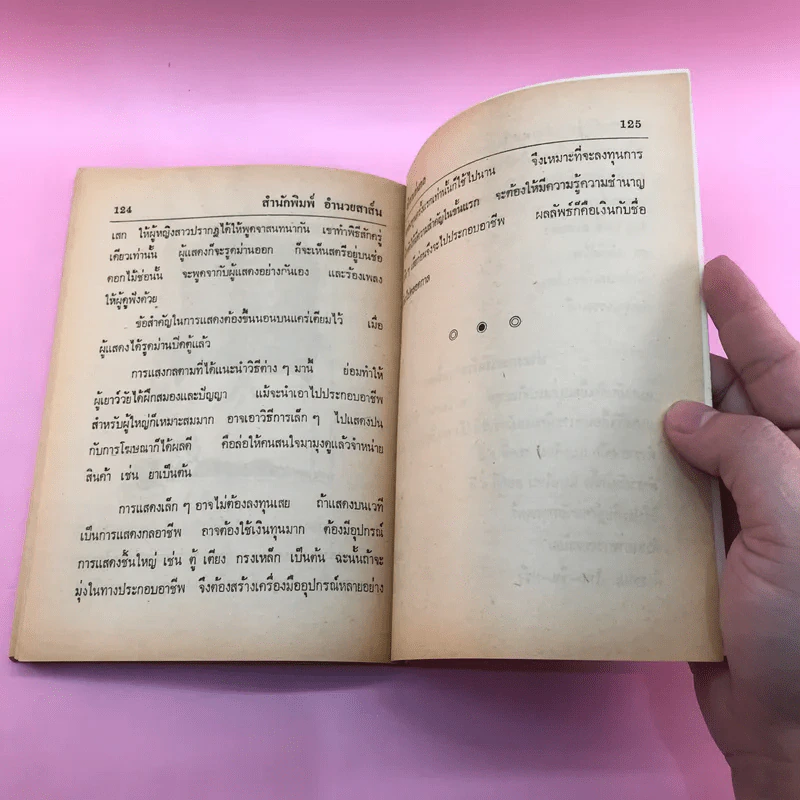 124 สำนักพิมพ์ อำนวยสาส์น
เสก ให้ผู้หญิงสาวปรากฏได้ให้พูดจาสนทนากัน เขาทำพิธีสักครู่
เดียวเท่านั้น ผู้แสดงก็จะรูดม่านออก ก็จะเห็นสตรีอยู่บนช่อ
ดอกไม้ช่อนั้น จะพูดจากับผู้แสดงอย่างกันเอง และร้องเพลง
ให้ผู้ดูฟังด้วย
ข้อสำคัญในการแสดงต้องขึ้นนอนบนแคร่เตียมไว้ เมื่อ
ผู้แสดงได้รูดม่านปิดตู้แล้ว
การแสงกลตามที่ได้แนะนำวิธีต่าง ๆ มานี้ ย่อมทำให้
ผู้เยาว์วัยได้ฝึกสมองและปัญญา แม้จะนำเอาไปประกอบอาชีพ
สำหรับผู้ใหญ่ก็เหมาะสมมาก อาจเอาวิธีการเล็ก ๆ ไปแสดงปน
กับการโฆษณาก็ได้ผลดี คือล่อให้คนสนใจมามุงดูแล้วจำหน่าย
สินค้า เช่น ยาเป็นต้น
การแสดงเล็ก ๆ อาจไม่ต้องลงทุนเลย ถ้าแสดงบนเวที
เป็นการแสดงกลอาชีพ อาจต้องใช้เงินทุนมาก ต้องมีอุปกรณ์
การแสดงชิ้นใหญ่ เช่น ตู้ เตียง กรงเหล็ก เป็นต้น ฉะนั้นถ้าจะ
มุ่งในทางประกอบอาชีพ จึงต้องสร้างเครื่องมืออุปกรณ์หลายอย่าง
125
เท่านั้นก็ใช้ไปนาน จึงเหมาะที่จะลงทุนการ
ความสำคัญในขั้นแรก จะต้องให้มีความรู้ความชำนาญ
ก่อนจึงจะไปประกอบอาชีพ ผลลัพธ์ก็คือเงินกับชื่อ